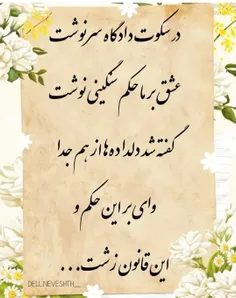 در سکوت دادگاه سرنوشت
عشق بر ما حکم سنگینی نوشت
گفته شد دلداده ها از هم جدا
وای بر این حکم و
این قانون زشت...
DELL.NEVESHTH__